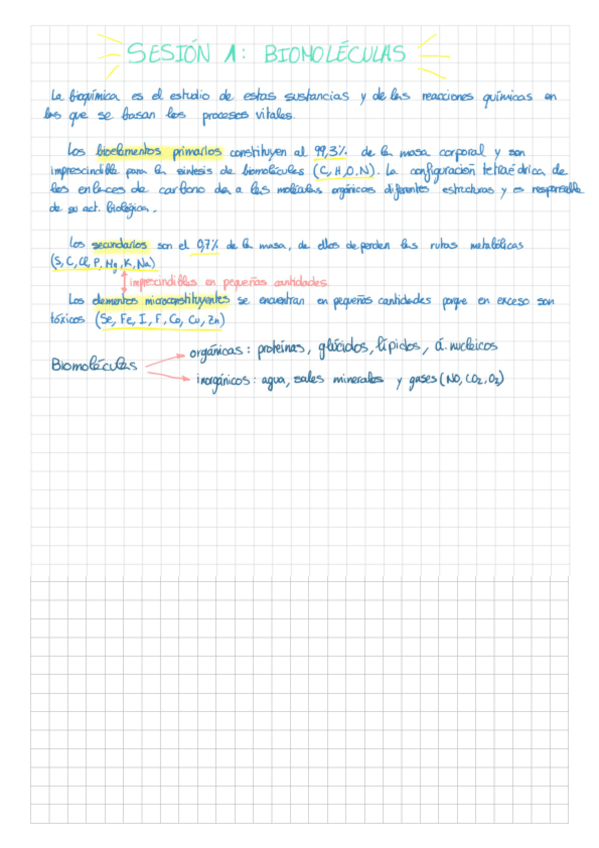 SESIÓN 1: BIOMOLÉCULAS
La bioquímica es el estudio de estas sustancias y de las reacciones químicas en
las que se basan los procesos vitales.
Los bioelementos primarios constituyen al 99,3% de la masa corporal y son
imprescindible para la síntesis de biomoléculas (C, H, O, N). La configuración tetraédrica de
los enlaces de carbono da a las moléculas orgánicas diferentes estructuras y es responsable
de su act. biológica.
Los secundarios son el 0,7% de la masa, de ellos dependen las rutas metabólicas
(S, C, Cl, P, Mg, K, Na)
imprescindibles en pequeñas cantidades
Los elementos microconstituyentes se encuentran en pequeñas cantidades porque en exceso son
tóxicos (Se, Fe, I, F, Co, Cu, Zn)
Biomoléculas
orgánicas: proteínas, glúcidos, lípidos, á. nucleicos
inorgánicos: agua, sales minerales y gases (NO, CO2, O2)